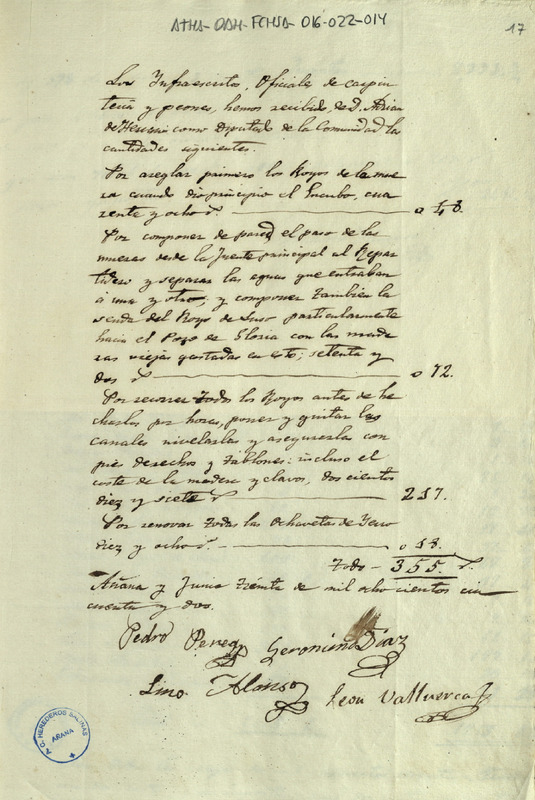 ATHA-DAH-FCHSA-016-022-014
17
Los Infraescritos, Oficiales de carpin
teria y peones, hemos recibido, de D. Adrian
de Heredia como Diputado de la Comunidad las
cantidades siguientes.
Por areglar primero los Royos de la mue
ra cuando dio principio el Encubo, cua
renta y ocho r.s
048.
Por componer de pared el paso de las
mueras desde la fuente principal al Repar
tidero y separar las aguas que entraban
à una y otro, y componer tambien la
senda del Royo de Suso particularmente
hacia el Pozo de Gloria con las made
ras viejas gastadas en esto; setenta y
dos r.s
072.
Por recorrer todos los Royos antes de he
charlos por horas, poner y quitar las
canales nivelarlas y asegurarlas con
pies derechos y tablones: incluso el
coste de la madera y clavos, dos cientos
diez y siete r.s
217.
Por renovar todas las Ochavetas de Yeso
diez y ocho r.s
018.
Todo - 355. r.s
Añana y Junio treinta de mil ocho cientos cin
cuenta y dos.
Pedro Perez
Geronimo Diaz
Lino Alonso
Leon Valluerca
G. HEREDEROS SALINAS
AÑANA